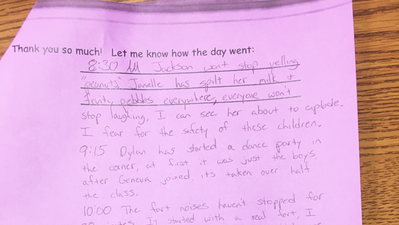 Thank you so much! Let me know how the day went:
8:30 AM Jackson won't stop yelling
"coconuts" Janelle has spilt her milk &
fruity pebbles everywhere, everyone won't
stop laughing, I can see her about to explode.
I fear for the safety of these children.
9:15 Dylan has started a dance party in
the corner, at first it was just the boys,
after Geneva joined, it's taken over half
the class.
10:00 The fart noises haven't stopped for
It started with a real fart, I